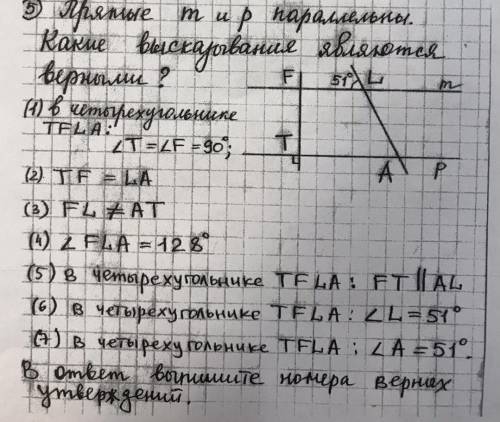 ⑤ Прямые m и p параллельны.
Какие высказывания являются
верными?
(1) в четырехугольнике
TFLA:
∠T = ∠F = 90°;
(2) TF = LA
(3) FL ≠ AT
(4) ∠FLA = 128°
(5) В четырехугольнике TFLA: FT || AL
(6) В четырехугольнике TFLA: ∠L = 51°
(7) В четырехугольнике TFLA: ∠A = 51°.
В ответ выпишите номера верных
утверждений.
F 51° L m
T A P